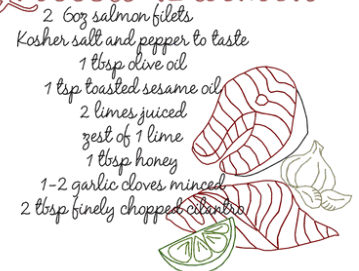 2 6oz salmon filets
Kosher salt and pepper to taste
1 tbsp olive oil
1 tsp toasted sesame oil
2 limes juiced
zest of 1 lime
1 tbsp honey
1-2 garlic cloves minced
2 tbsp finely chopped cilantro